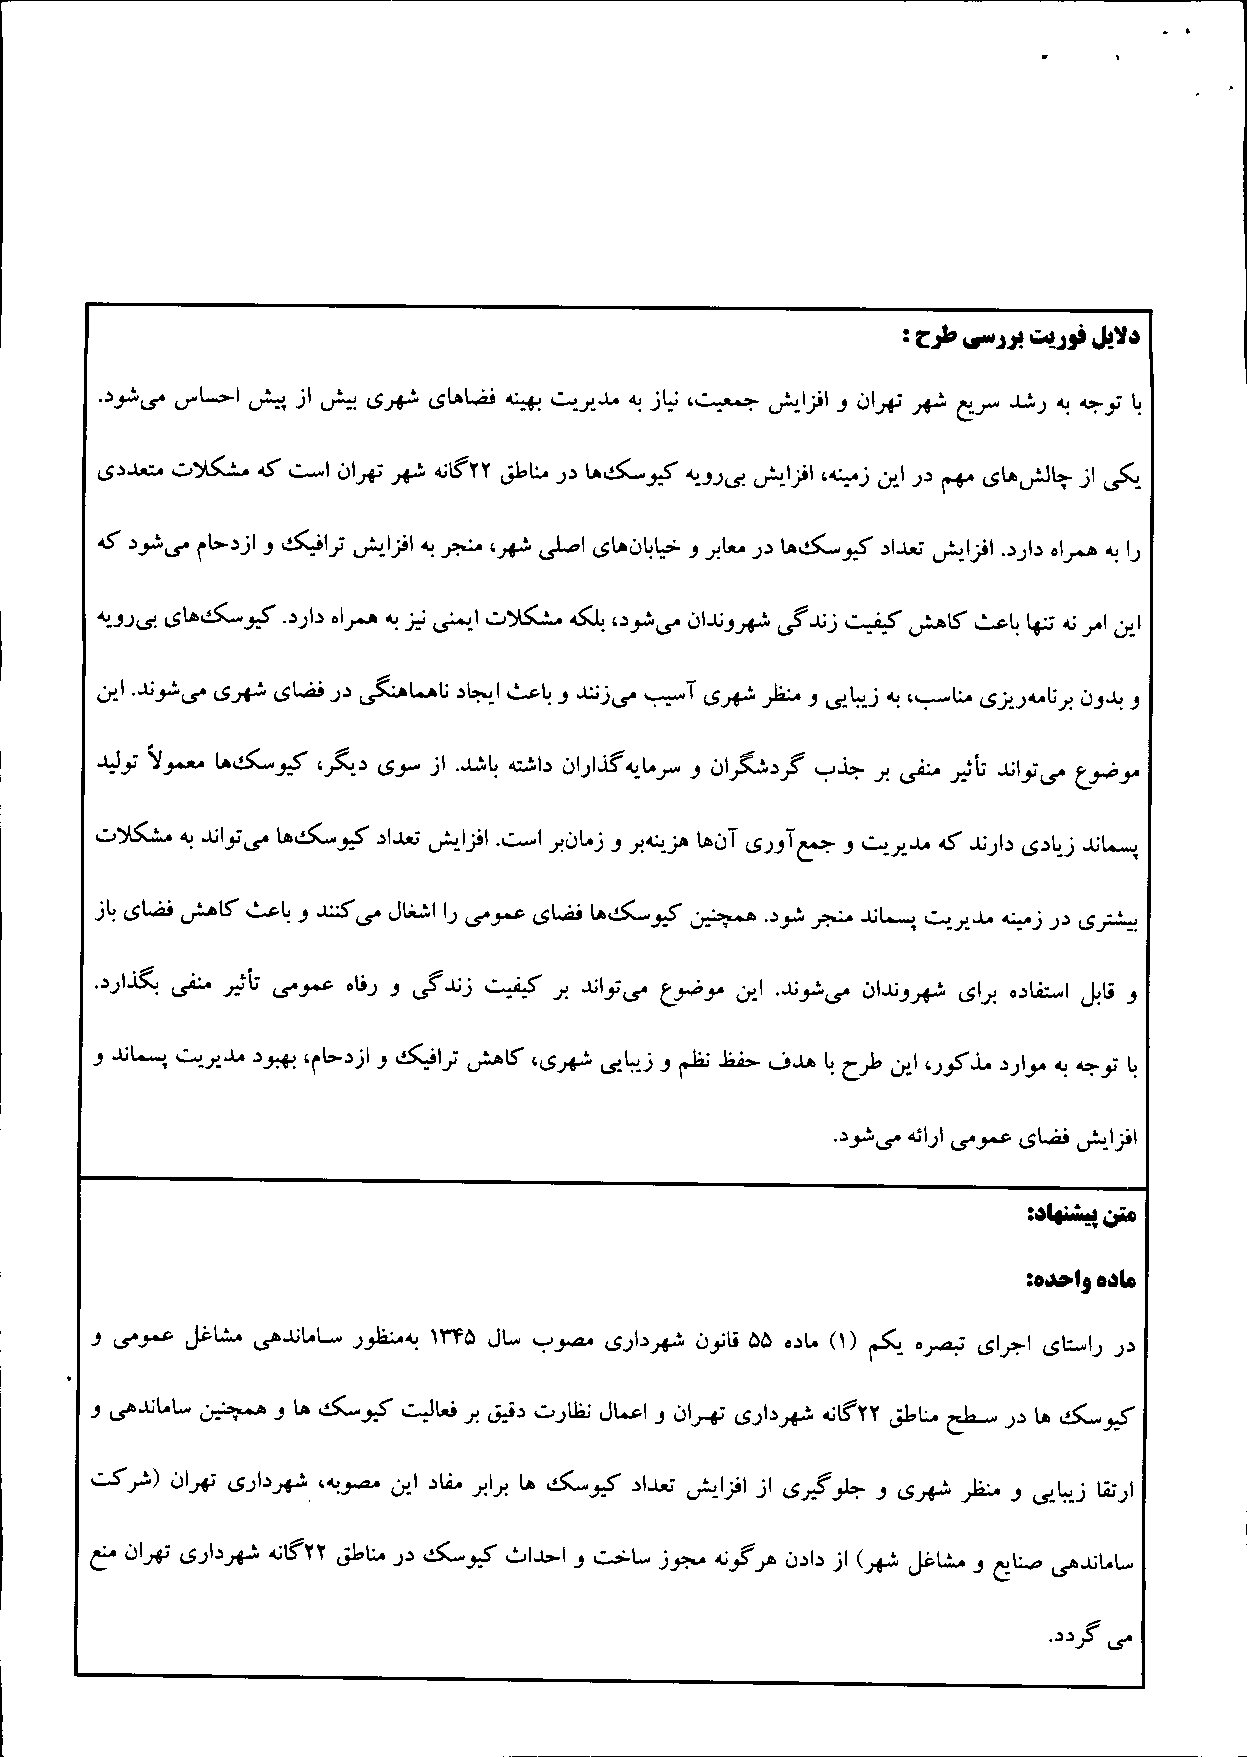 دلایل فوریت بررسی طرح :
با توجه به رشد سریع شهر تهران و افزایش جمعیت، نیاز به مدیریت بهینه فضاهای شهری بیش از پیش احساس می‌شود.
یکی از چالش‌های مهم در این زمینه، افزایش بی‌رویه کیوسک‌ها در مناطق ۲۲گانه شهر تهران است که مشکلات متعددی
را به همراه دارد. افزایش تعداد کیوسک‌ها در معابر و خیابان‌های اصلی شهر، منجر به افزایش ترافیک و ازدحام می‌شود که
این امر نه تنها باعث کاهش کیفیت زندگی شهروندان می‌شود، بلکه مشکلات ایمنی نیز به همراه دارد. کیوسک‌های بی‌رویه
و بدون برنامه‌ریزی مناسب، به زیبایی و منظر شهری آسیب می‌زنند و باعث ایجاد ناهماهنگی در فضای شهری می‌شوند. این
موضوع می‌تواند تأثیر منفی بر جذب گردشگران و سرمایه‌گذاران داشته باشد. از سوی دیگر، کیوسک‌ها معمولاً تولید
پسماند زیادی دارند که مدیریت و جمع‌آوری آن‌ها هزینه‌بر و زمان‌بر است. افزایش تعداد کیوسک‌ها می‌تواند به مشکلات
بیشتری در زمینه مدیریت پسماند منجر شود. همچنین کیوسک‌ها فضای عمومی را اشغال می‌کنند و باعث کاهش فضای باز
و قابل استفاده برای شهروندان می‌شوند. این موضوع می‌تواند بر کیفیت زندگی و رفاه عمومی تأثیر منفی بگذارد.
با توجه به موارد مذکور، این طرح با هدف حفظ نظم و زیبایی شهری، کاهش ترافیک و ازدحام، بهبود مدیریت پسماند و
افزایش فضای عمومی ارائه می‌شود.
متن پیشنهاد:
ماده واحده:
در راستای اجرای تبصره یکم (۱) ماده ۵۵ قانون شهرداری مصوب سال ۱۳۴۵ به‌منظور ساماندهی مشاغل عمومی و
کیوسک ها در سطح مناطق ۲۲گانه شهرداری تهران و اعمال نظارت دقیق بر فعالیت کیوسک ها و همچنین ساماندهی و
ارتقا زیبایی و منظر شهری و جلوگیری از افزایش تعداد کیوسک ها برابر مفاد این مصوبه، شهرداری تهران (شرکت
ساماندهی صنایع و مشاغل شهر) از دادن هرگونه مجوز ساخت و احداث کیوسک در مناطق ۲۲گانه شهرداری تهران منع
می گردد.